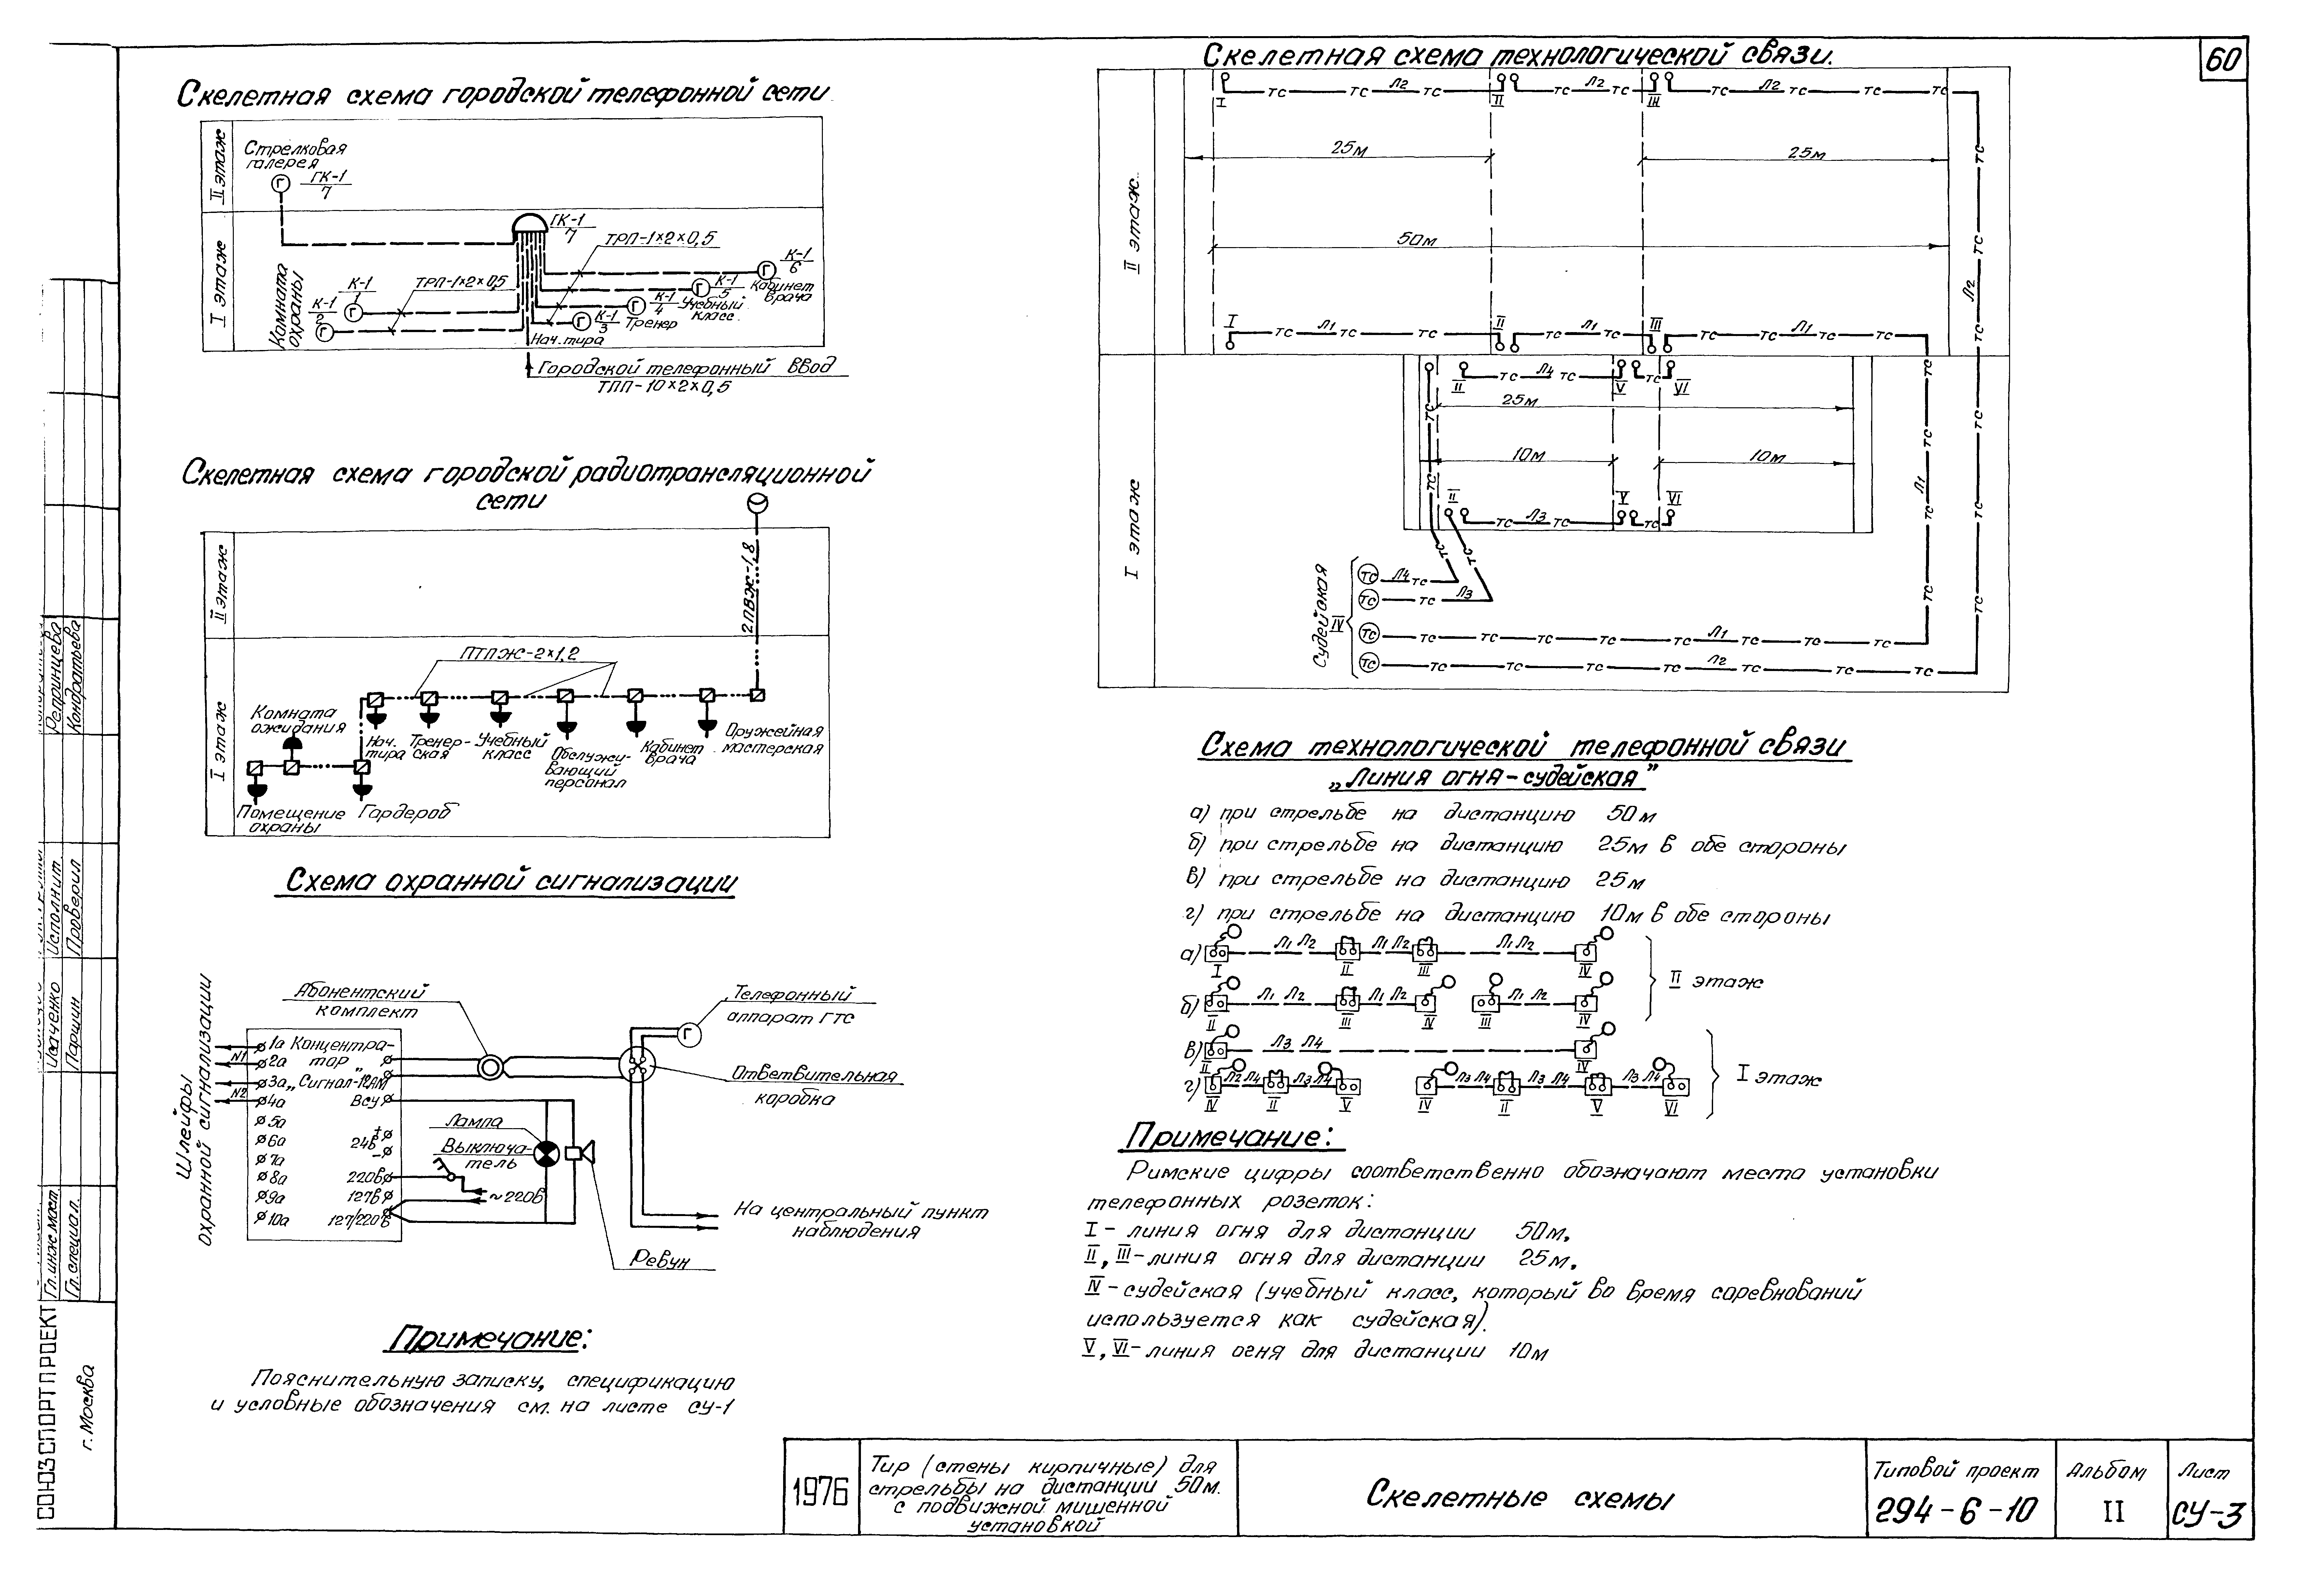 60
Скелетная схема городской телефонной сети
II этаж
Стрелковая
галерея
Г
ГК-1
7
I этаж
ГК-1
7
ТРП-1×2×0,5
К-1
6
Г
Кабинет
врача
Комната
охраны
К-1
1
Г
К-1
2
Г
ТРП-1×2×0,5
К-1
5
Г
Учебный
класс
К-1
4
Г
Тренер
К-1
3
Г
Нач. тира
Городской телефонный ввод
ТПП-10×2×0,5
Скелетная схема городской радиотрансляционной
сети
II этаж
2ПВЖ-1,8
I этаж
ПТПЖ-2×1,2
Комната
ожидания
Нач.
тира
Тренер-
ская
Учебный
класс
Обслужи-
вающий
персонал
Кабинет
врача
Оружейная
мастерская
Помещение
охраны
Гардероб
Схема охранной сигнализации
Шлейфы
охранной сигнализации
N1
N2
Абонентский
комплект
Телефонный
аппарат ГТС
Г
1а Концентра-
2а тор
3а „Сигнал-12АМ
4а Всу
5а
6а 24в
+
-
7а
8а 220в
9а 127в
10а 127/220в
Лампа
Выключа-
тель
~220в
Ответвительная
коробка
На центральный пункт
наблюдения
Ревун
Примечание:
Пояснительную записку, спецификацию
и условные обозначения см. на листе СУ-1
Скелетная схема технологической связи.
II этаж
I ТС ТС Л2 ТС II ТС Л2 ТС III ТС Л2 ТС ТС ТС
25м
25м
50м
ТС
ТС
Л2
ТС
ТС
ТС
ТС
I ТС Л1 ТС ТС II ТС Л1 ТС III ТС ТС Л1 ТС
I этаж
II ТС Л4 ТС V ТС VI
25м
10м
10м
ТС
ТС
II ТС Л3 ТС V ТС VI
ТС
ТС
Л1
ТС
ТС
ТС
ТС
ТС
Судейская
IV
ТС Л4 ТС
ТС ТС Л3
ТС ТС ТС ТС ТС Л1 ТС ТС ТС
ТС ТС ТС ТС ТС Л2 ТС ТС ТС
Схема технологической телефонной связи
„Линия огня-судейская”
а) при стрельбе на дистанцию 50м
б) при стрельбе на дистанцию 25м в обе стороны
в) при стрельбе на дистанцию 25м
г) при стрельбе на дистанцию 10м в обе стороны
а) Л1 Л2 Л1 Л2 Л1 Л2
I II III IV
б) Л1 Л2 Л1 Л2 Л1 Л2
II III IV III IV
II этаж
в) Л3 Л4
II IV
г) Л2 Л4 Л3 Л4 Л3 Л4 Л3 Л4 Л3 Л4
IV II V IV II V VI
I этаж
Примечание:
Римские цифры соответственно обозначают места установки
телефонных розеток:
I - линия огня для дистанции 50м.
II, III - линия огня для дистанции 25м.
IV - судейская (учебный класс, который во время соревнований
используется как судейская).
V, VI - линия огня для дистанции 10м
Репринцева
Кондратьева
Исполнит.
Проверил
Иваченко
Паршин
Гл. инж. маст.
Гл. специал.
СОЮЗСПОРТПРОЕКТ
г. Москва
1976
Тир (стены кирпичные) для
стрельбы на дистанции 50м.
с подвижной мишенной
установкой
Скелетные схемы
Типовой проект
294-6-10
Альбом
II
Лист
СУ-3